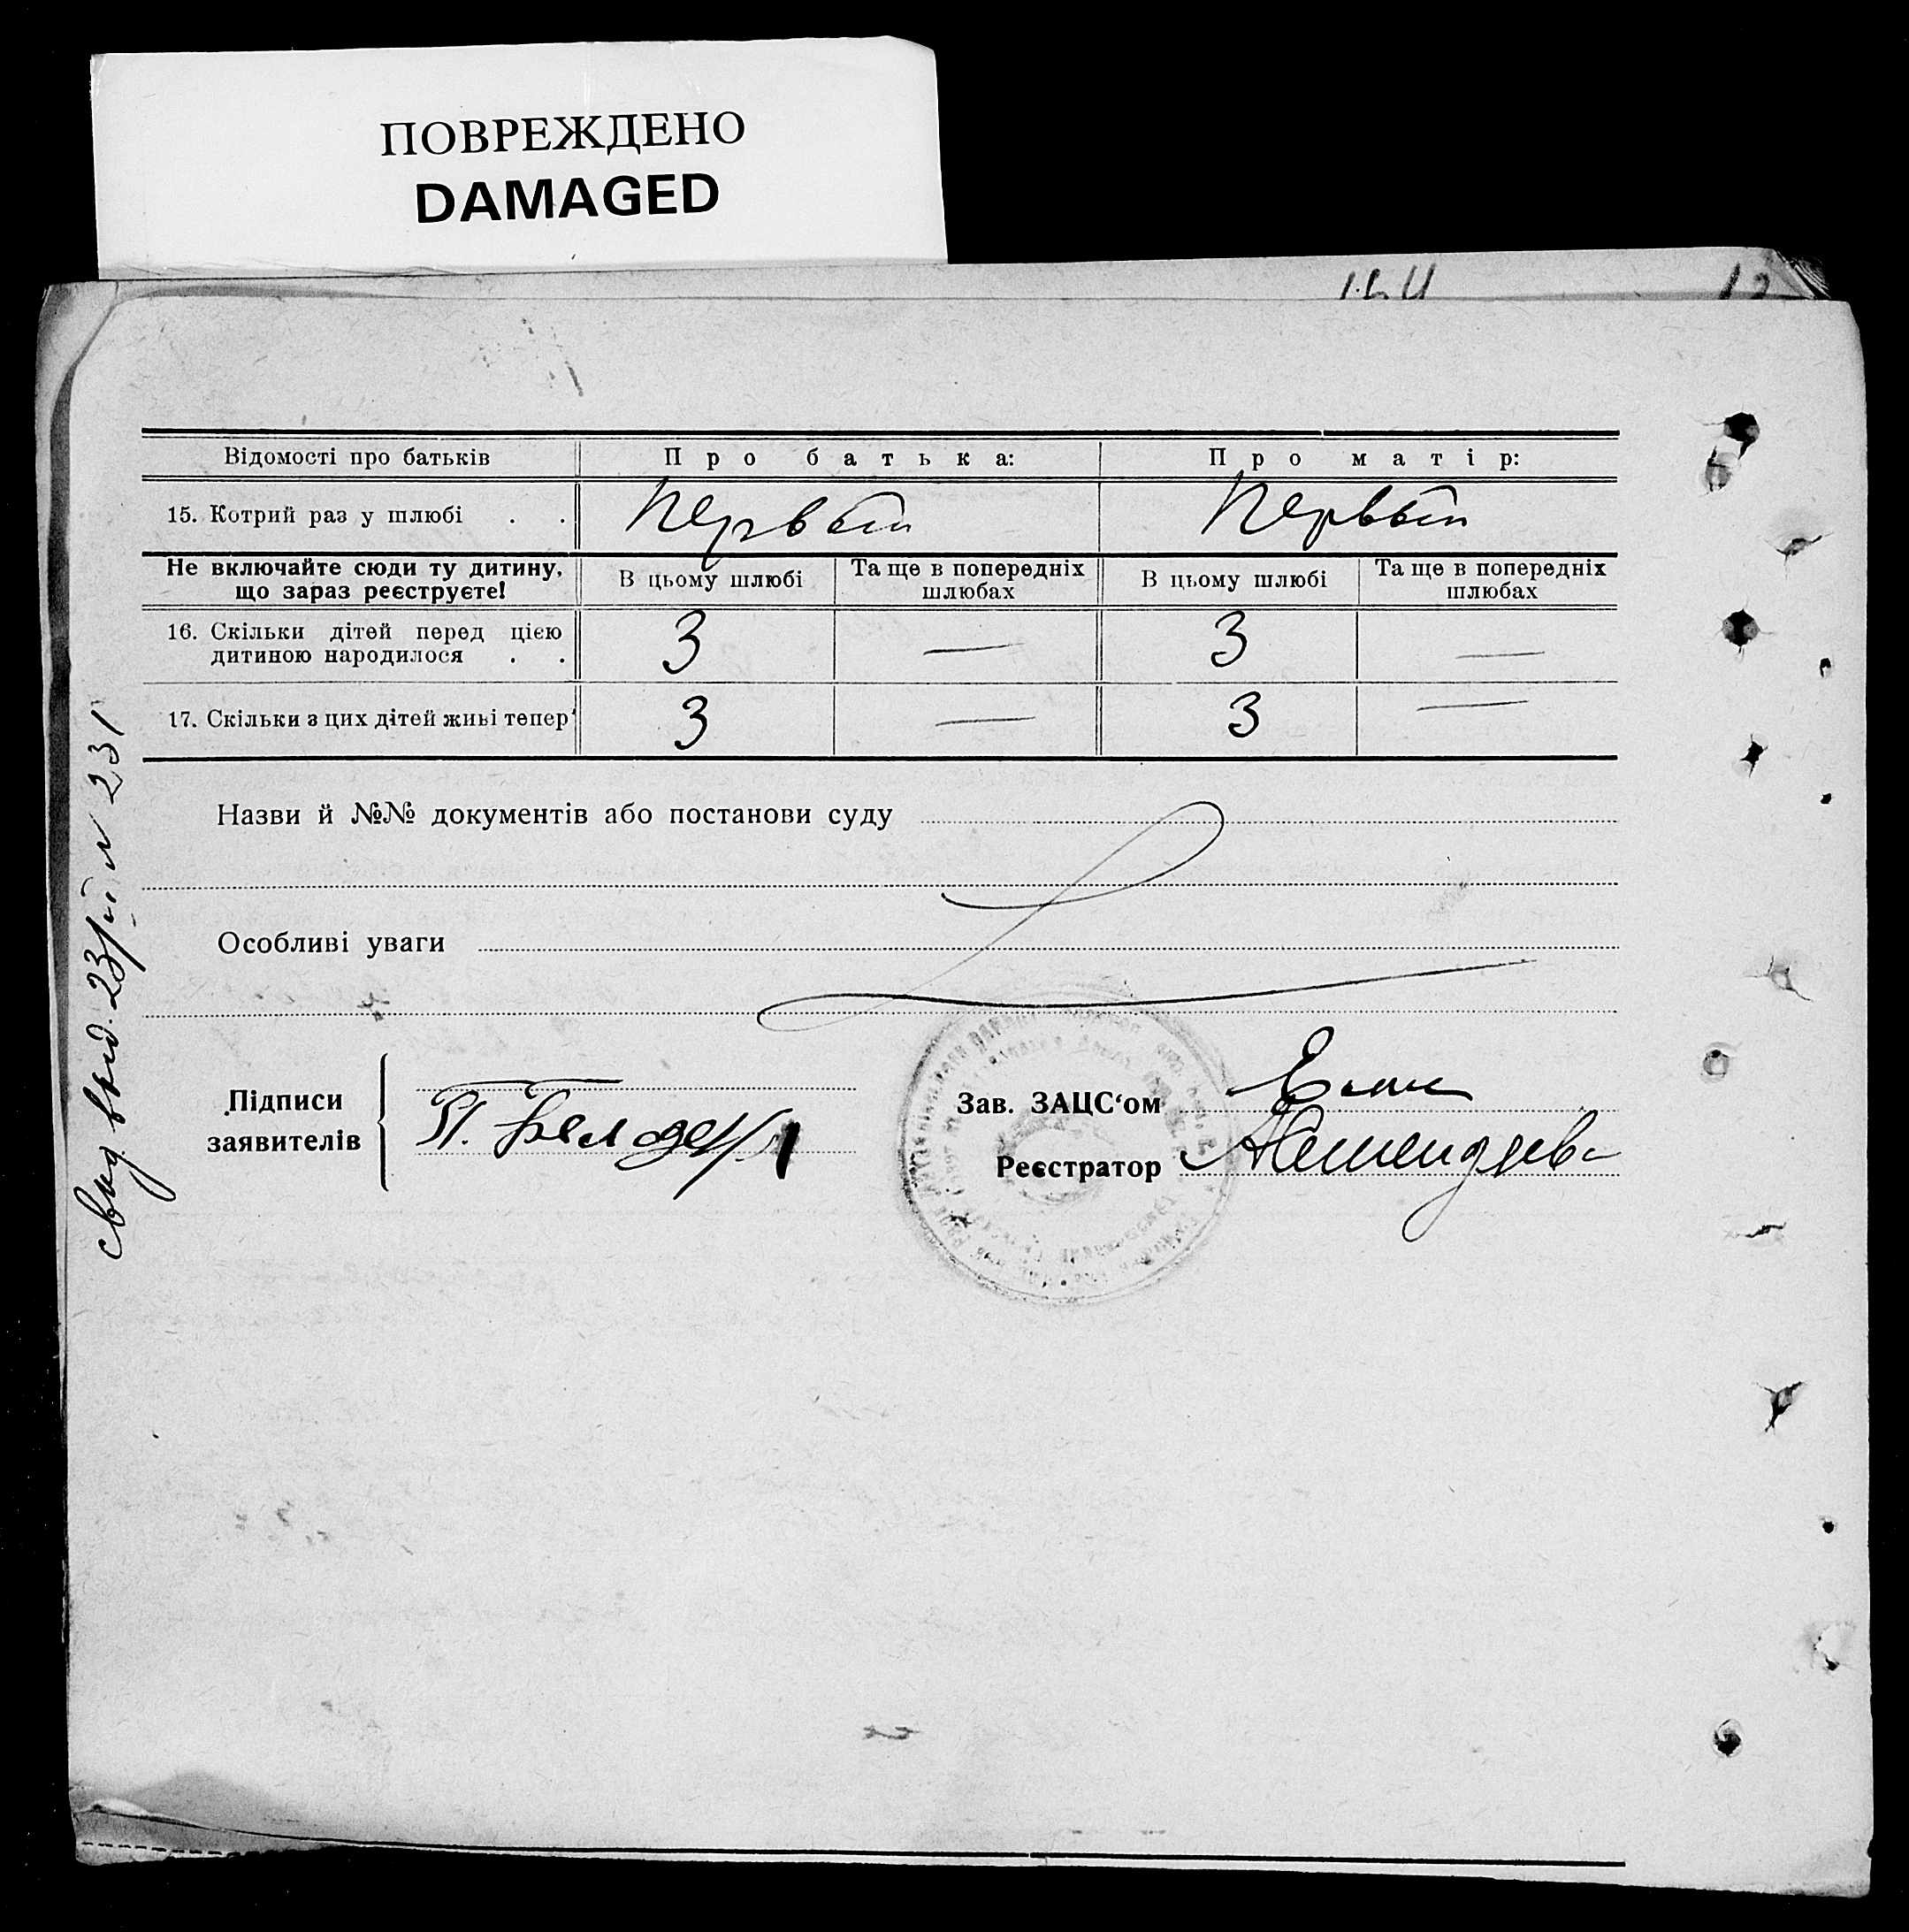 ПОВРЕЖДЕНО
DAMAGED
Відомості про батьків
Про батька:
Про матір:
15. Котрий раз у шлюбі . .
Первый
Первый
Не включайте сюди ту дитину,
що зараз реєструєте!
В цьому шлюбі
Та ще в попередніх
шлюбах
В цьому шлюбі
Та ще в попередніх
шлюбах
16. Скільки дітей перед цією
дитиною народилося . .
3
—
3
—
17. Скільки з цих дітей живі тепер
3
—
3
—
Назви й №№ документів або постанови суду
Особливі уваги
Підписи
заявителів
Зав. ЗАЦС‘ом
Реєстратор
свид. выд. 23/ № 231